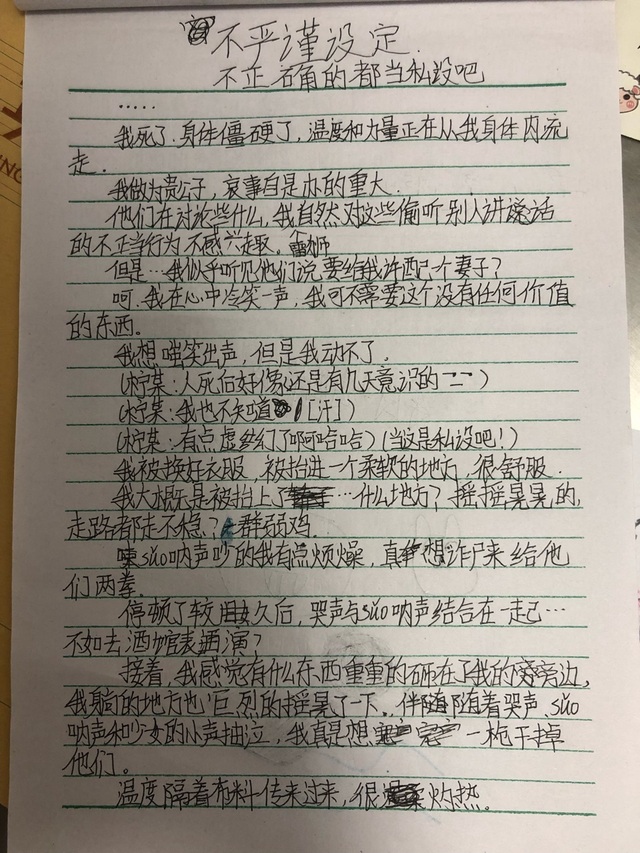 不严谨设定.
不正确的都当私设吧
.....
我死了.身体僵硬了,温度和力量正在从我身体内流
走.
我做为贵公子,哀事自是办的重大.
他们在讨论些什么,我自然对这些偷听别人讲说话
的不正当行为不感兴趣。
但是…我似乎听见他们说要给我许配一个妻子?
呵.我在心中冷笑一声,我可不需要这个没有任何价值
的东西。
我想嗤笑出声,但是我动不了.
(柠某:人死后好像还是有几天意识的)
(柠某:我也不知道[汗])
(柠某:有点虚幻了啊哈哈)(当这是私设吧!)
我被换好衣服,被抬进一个柔软的地方,很舒服.
我大概是被抬上了…什么地方?摇摇晃晃的,
走路都走不稳?一群弱鸡.
suo呐声吵的我有点烦燥,真想诈尸来给他
们两拳.
停顿了较久后,哭声与suo呐声结合在一起…
不如去酒馆表演?
接着,我感觉有什么东西重重的砸在了我的旁边,
我躺的地方也巨烈的摇晃了一下.伴随随着哭声、suo
呐声和少女的小声抽泣,我真是想一枪干掉
他们。
温度隔着布料传来过来,很灼热。